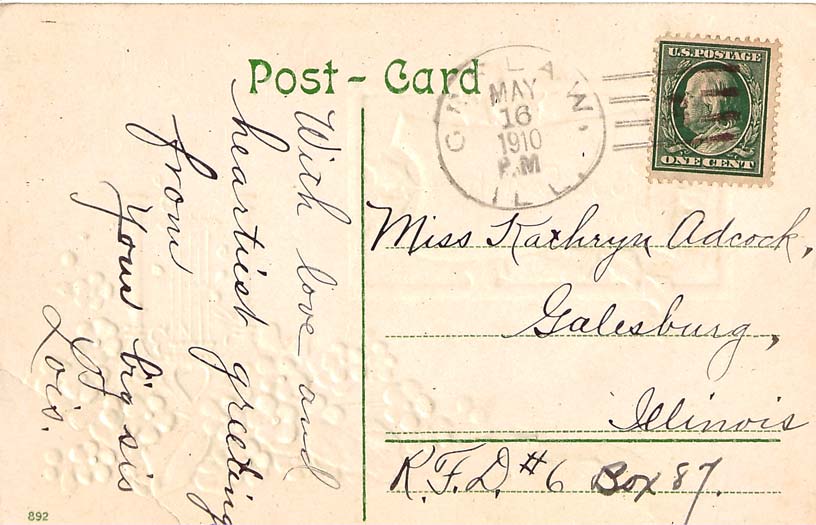 Post-Card
GERLAW,
MAY
16
1910
P.M
ILL.
U.S. POSTAGE
ONE CENT
With love and
heartiest greeting
from
Your big sis
Lois.
Miss Kathryn Adcock,
Galesburg,
Illinois
R.F.D. #6 Box 87.
892